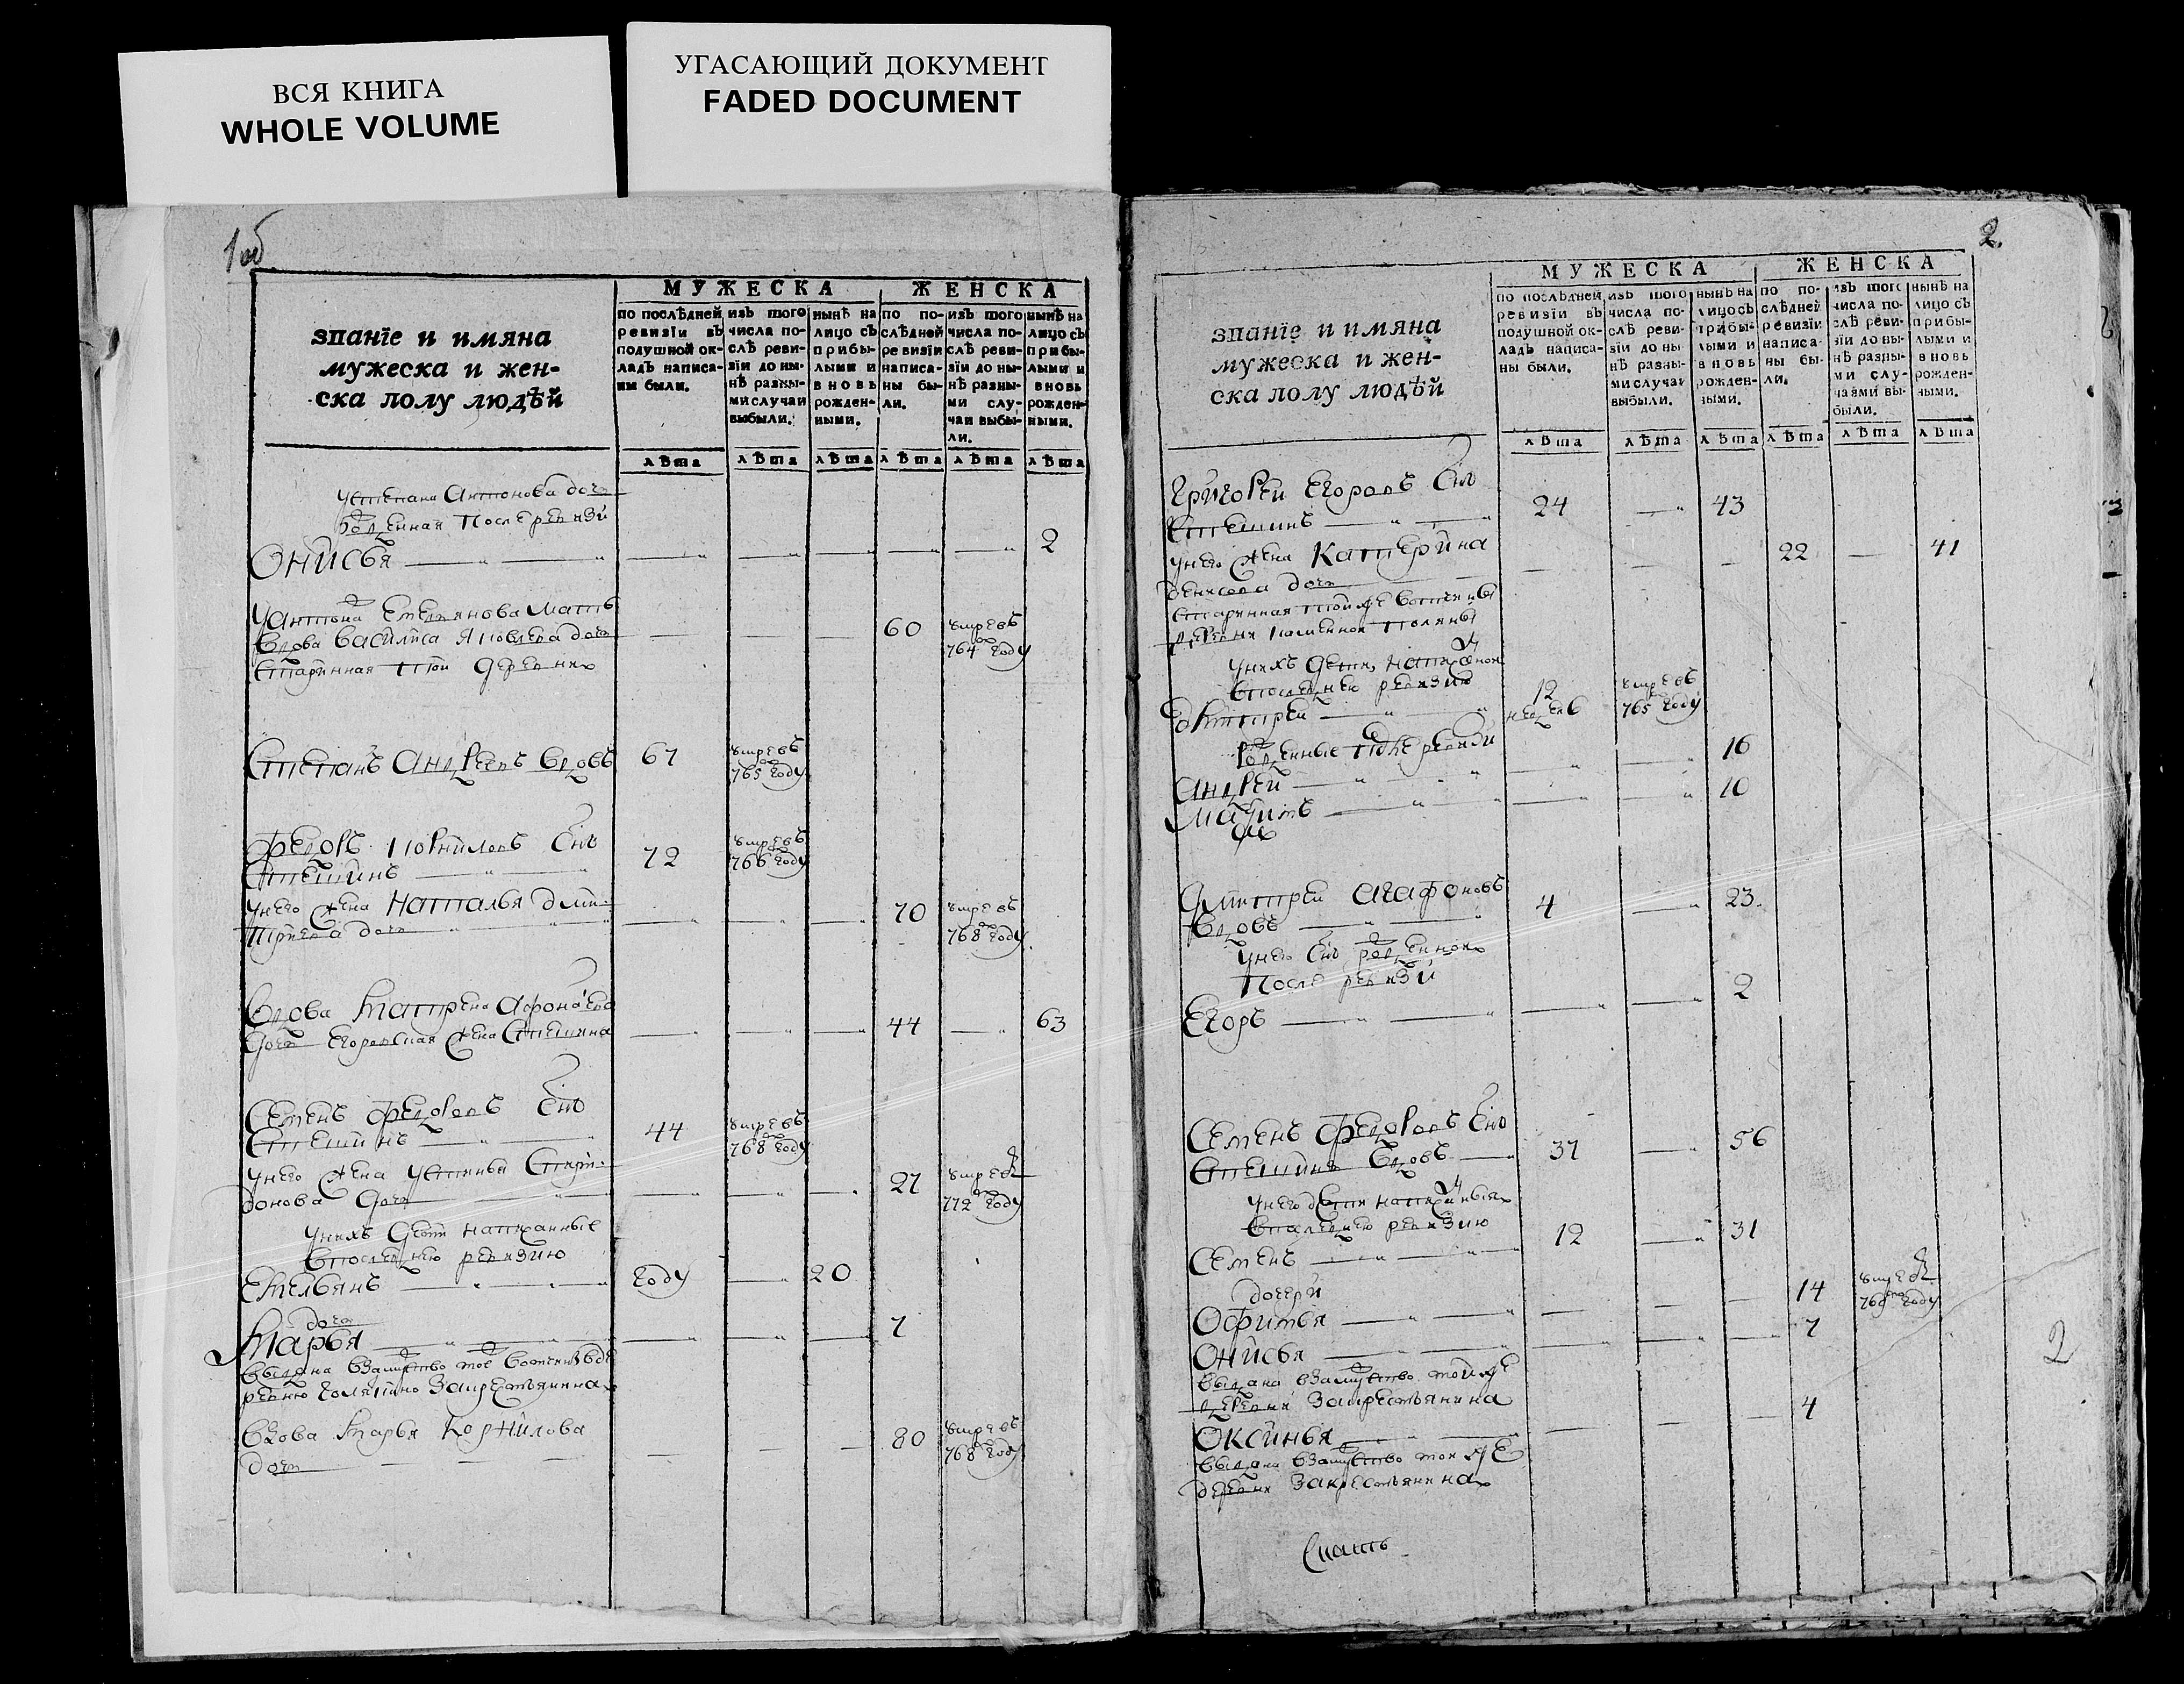 ВСЯ КНИГА
WHOLE VOLUME
УГАСАЮЩИЙ ДОКУМЕНТ
FADED DOCUMENT
1об
МУЖЕСКА
ЖЕНСКА
званїе и имяна
мужеска и жен-
ска полу людѣй
по послѣдней ревизїи въ подушной ок-ладъ написа-ны были.
изъ того числа по-слѣ реви-зїи до ны-нѣ разны-ми случаи выбыли.
нынѣ на лицо съ прибы-лыми и вновь рожден-ными.
по по-слѣдней ревизїи написа-ны бы-ли.
изъ того числа по-слѣ реви-зїи до ны-нѣ разны-ми слу-чаи выбы-ли.
нынѣ на лицо съ прибы-лыми и вновь рожден-ными.
лѣта лѣта лѣта лѣта лѣта лѣта
Устепана Антонова доч
рожденная после ревизи
Онисья 2
Уантона Емельянова мать
вдова василиса доч 60 умре въ 764 году
старинная той деревни
Степанъ Андреевъ вдовъ 67 умре въ 765 году
Федоръ Корниловъ Снъ 72 умре въ 766 году
унего жена Наталья Дми-
триева доч 70 умре въ 768 году
Вдова Матрена Афонасева
доч Егоровская жена 44 63
Семенъ Федоровъ Снъ 44 умре въ 768 году
унего жена Устинья Спири-
донова доч 27 умре 772 году
унихъ дети написанные
впоследнею ревизию
Емельянъ году 20
доч
Марья 7
выдана взамужство тое вотчины вде-
ревню за крестьянина
Вдова Марья Корнилова
доч 80 умре въ 768 году
2.
МУЖЕСКА
ЖЕНСКА
званїе и имяна
мужеска и жен-
ска полу людѣй
по послѣдней ревизїи въ подушной ок-ладъ написа-ны были.
изъ того числа по-слѣ реви-зїи до ны-нѣ разны-ми случаи выбыли.
нынѣ на лицо съ прибы-лыми и вновь рожден-ными.
по по-слѣдней ревизїи написа-ны бы-ли.
изъ того числа по-слѣ реви-зїи до ны-нѣ разны-ми слу-чаями вы-были.
нынѣ на лицо съ прибы-лыми и вновь рожден-ными.
лѣта лѣта лѣта лѣта лѣта лѣта
Григорей Егоровъ Снъ 24 43
унего жена Катерина 22 41
денисова доч
старинная тойже вотчины
деревни каменной поляны
унихъ дети написанной
впоследнею ревизию
Дмитрей 12 недель умре въ 765 году
рожденные после ревизи
Андрей 16
10
Дмитрей Агафоновъ 4 23
вдовъ
унего Снъ рожденной
после ревизи
Егоръ 2
Семенъ Федоровъ Снъ
вдовъ 37 56
унего дети написаныя
впоследнею ревизию
Семенъ 12 31
дочери
Офимья 14 умре году
Онисья 7
выдана взамужство тойже
деревни за крестьянина
Оксинья 4
выдана взамужство тойже
деревни за крестьянина
2